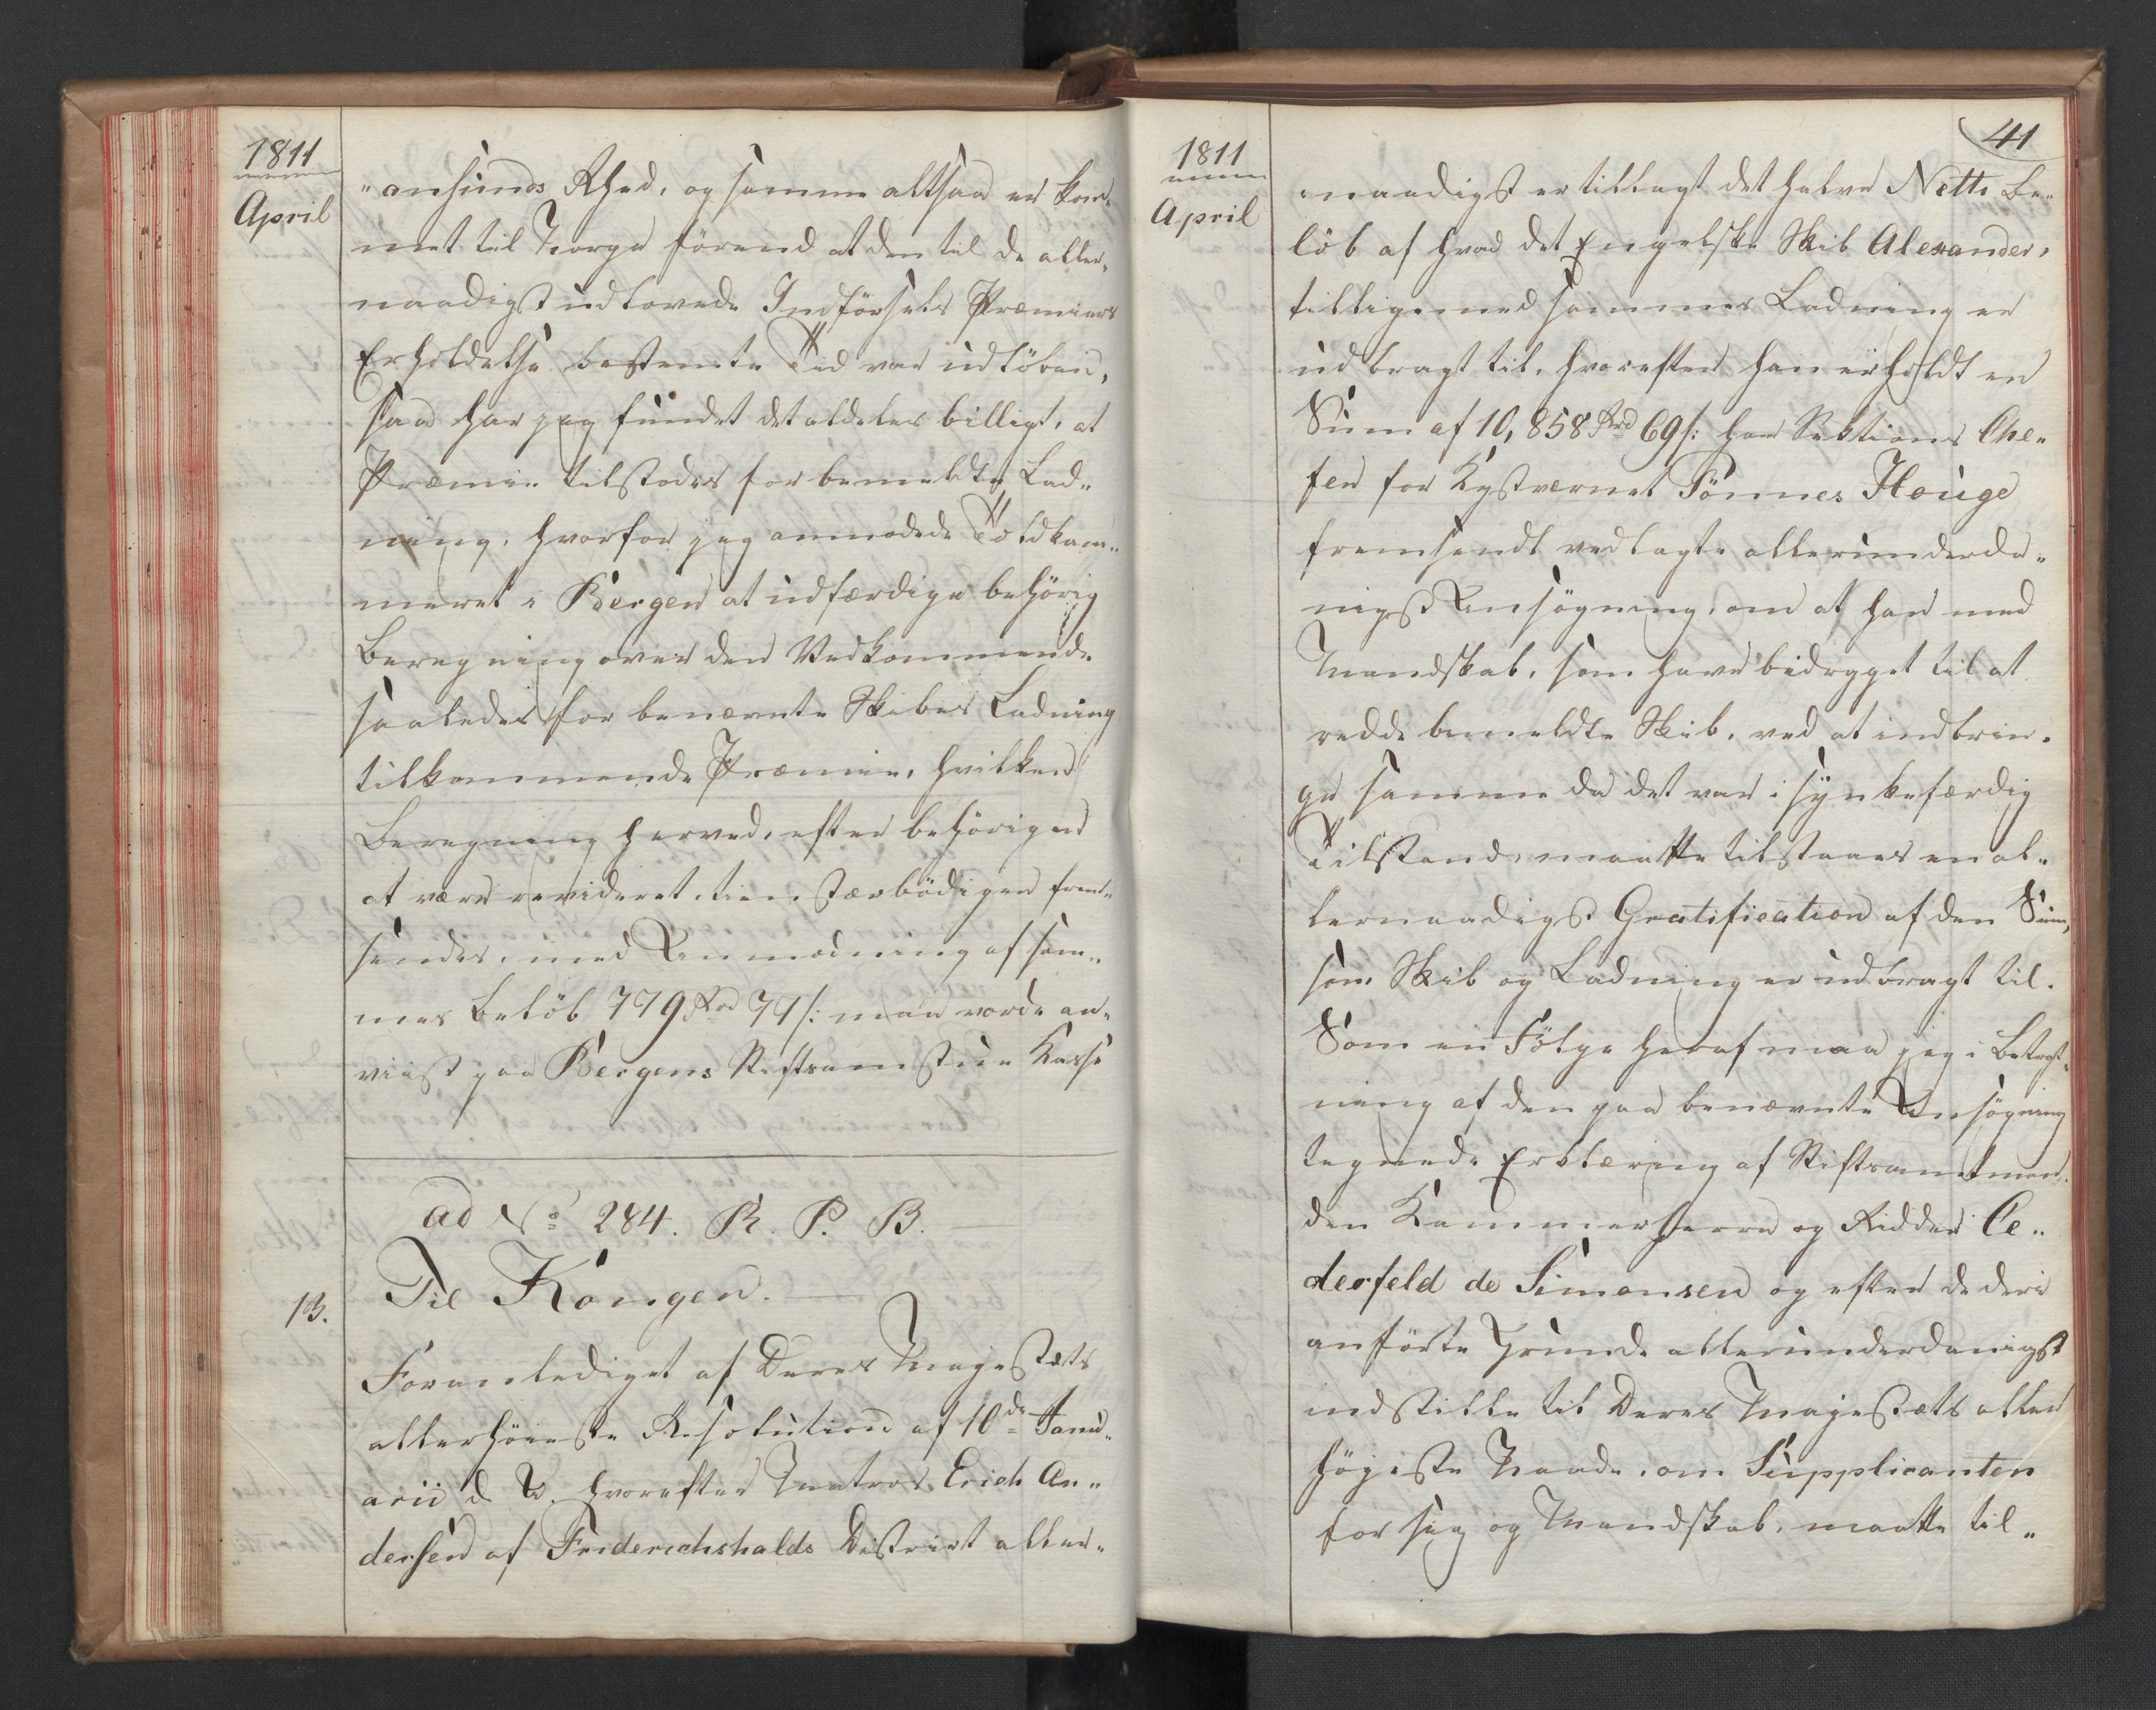 1811
April
"ansunds Rhed, og samme altsaa er kom¬
met til Norge förend at den til de aller„
naadigst udlovede Indförsels Præmiers
Erholdelse bestemte Tid var udlöben,
saa har jeg fundet det aldeles billigt, at
Præmie tilstodes for bemeldte Lad„
ning, hvorfor jeg anmodede Toldkam„
meret i Bergen at udfærdige behörig
Beregning over den Vedkommende
saaledes for benævnte Skibes Ladning
tilkommende Præmie, hvilken
Beregning herved, efter behörigen
at være revideret, tienstærbödigen frem„
sendes, med Anmodning at sam„
mes Belöb 779 Rd 77 s: maa vorde an„
viist paa Bergens Stiftsamtstue Kasse
ad No 284. R. P. B.
13.
Til Kongen.
Foranlediget af Deres Majestæts
allerhöieste Resolution af 10de Janu„
arii d. A. hvorefter Matros Erich An„
dersen af Friderichshalds District aller„
1811
April
41
„naadigst er tillagt det halve Netto Be„
löb af hvad det Engelske Skib Alexander,
tilligemed sammes Ladning er
udbragt til, hvorefter han erholdt en
Sum af 10,858 Rd 69 s: har Sektions Che„
fen for Kystværnet Tönnes Houge
fremsendt vedlagte allerunderda„
nigst Ansögning, om at han med
Mandskab, som have bidraget til at
redde bemeldte Skib, ved at indbrin„
ge samme da det var i synkefærdig
Tilstand, maatte tilstaaes en al„
lernaadigst Gratification af den Sum,
som Skib og Ladning er udbragt til.
Som en Fölge heraf maa jeg i Betragt„
ning af den paa benævnte Ansögning
tegnede Erklæring af Stiftsamtman„
den Kammerherre og Ridder Ce„
derfeld de Simonsen og efter de deri
anförte Grunde allerunderdanigst
indstille til Deres Majestæts aller
höjeste Naade, om Supplicanten
for sig og Mandskab, maatte til„